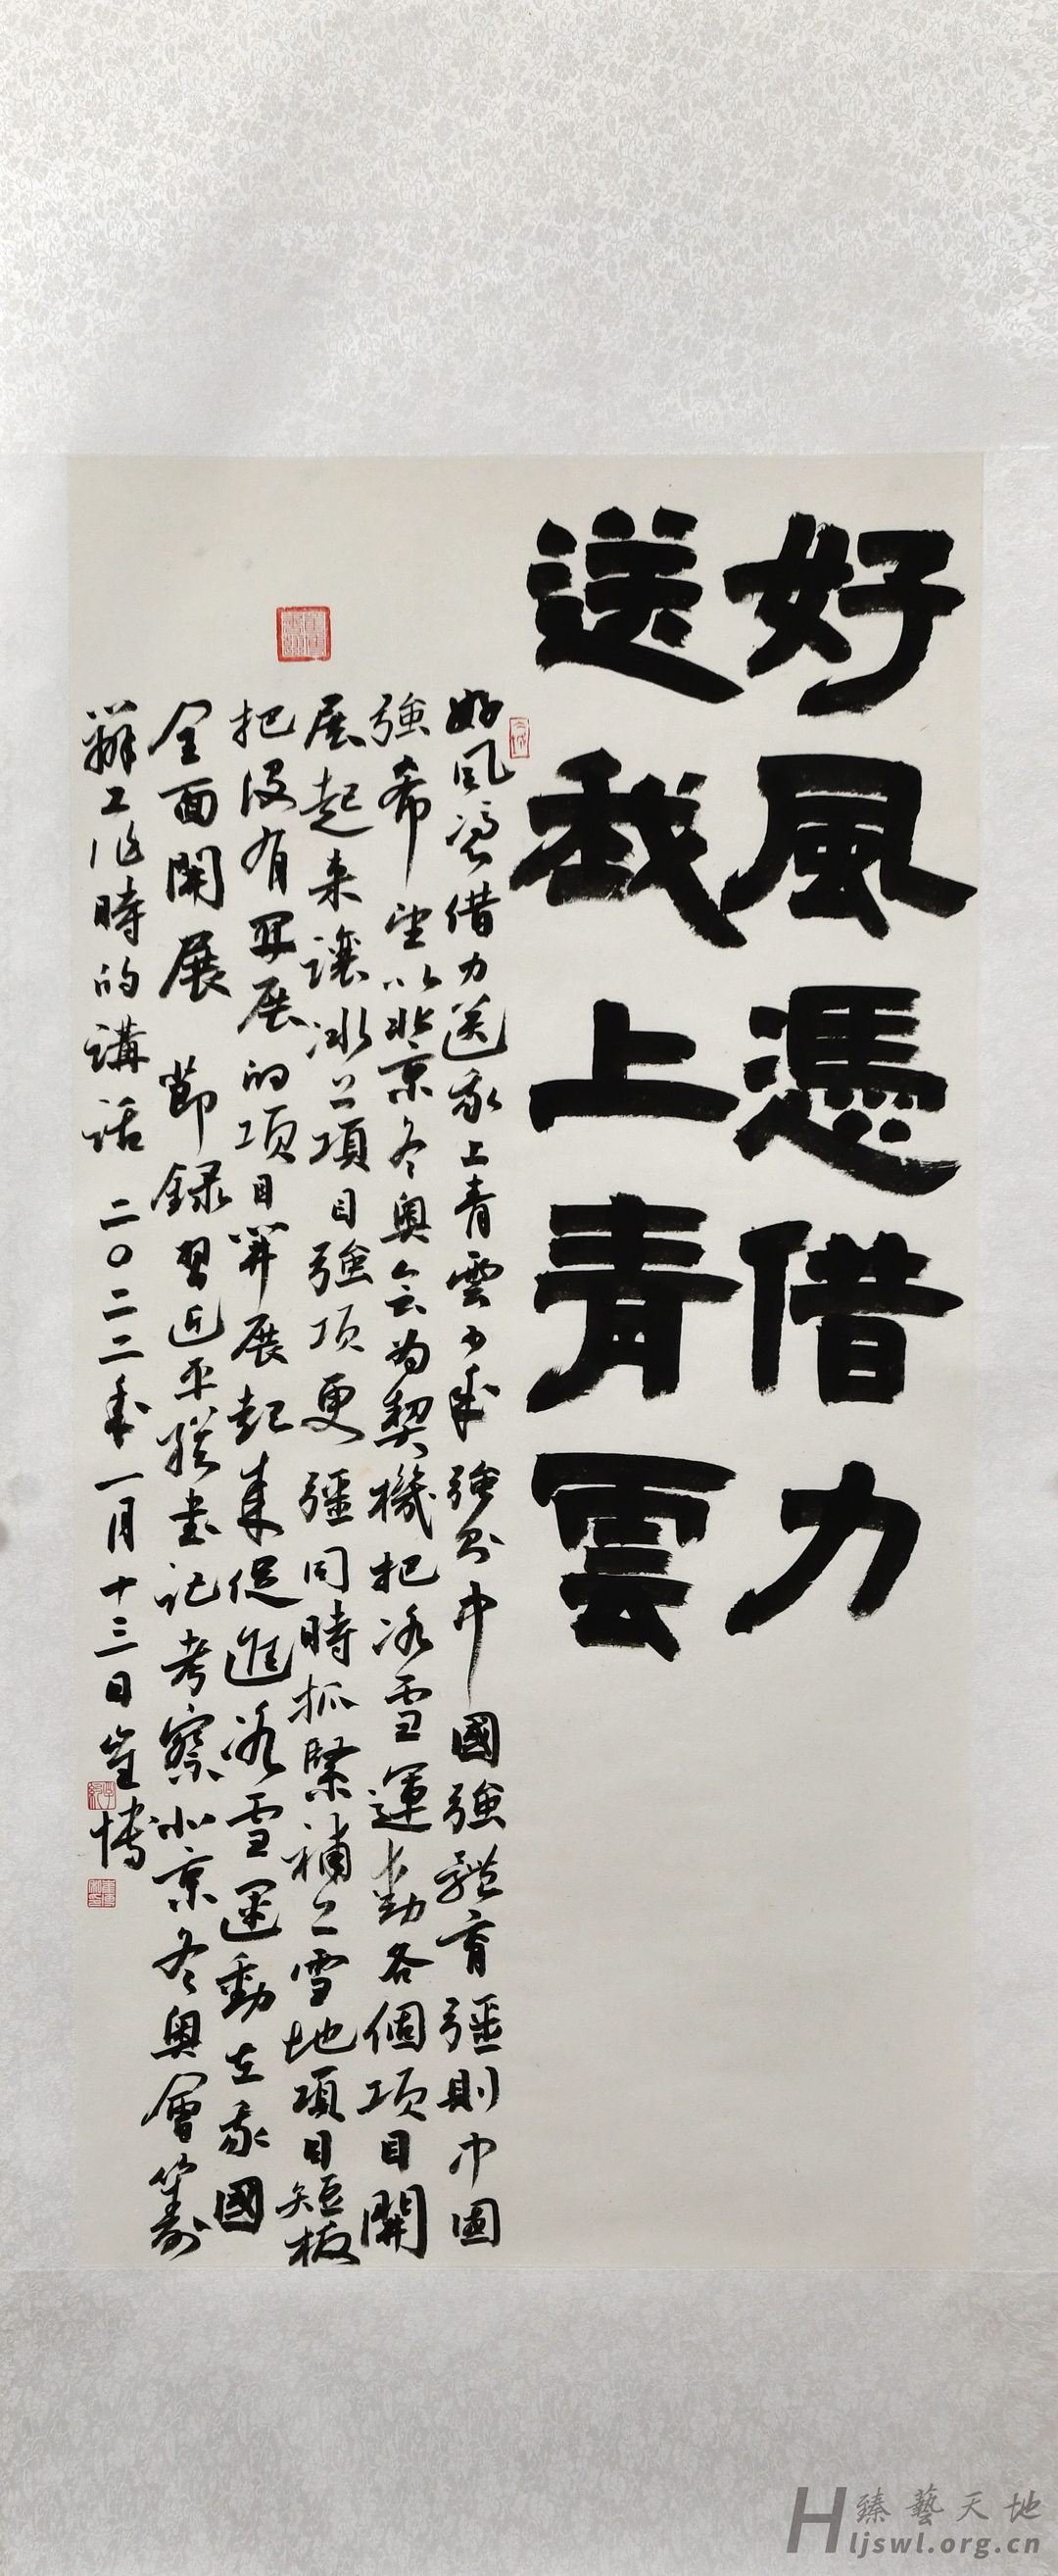 好風憑借力
送我上青雲
好风憑借力送我上青雲少年強則中國強體育彊則中国
強希望以北京冬奥会为契機把冰雪運動各個项目開
展起来讓冰上項目強项更彊同時抓緊補上雪地項目短板
把没有開展的项目開展起来促進冰雪運動在我國
全面開展 節録習近平總書记考察北京冬奥會籌
辦工作時的講话 二〇二二年一月十三日崔博
臻藝天地
Hljswl.org.cn